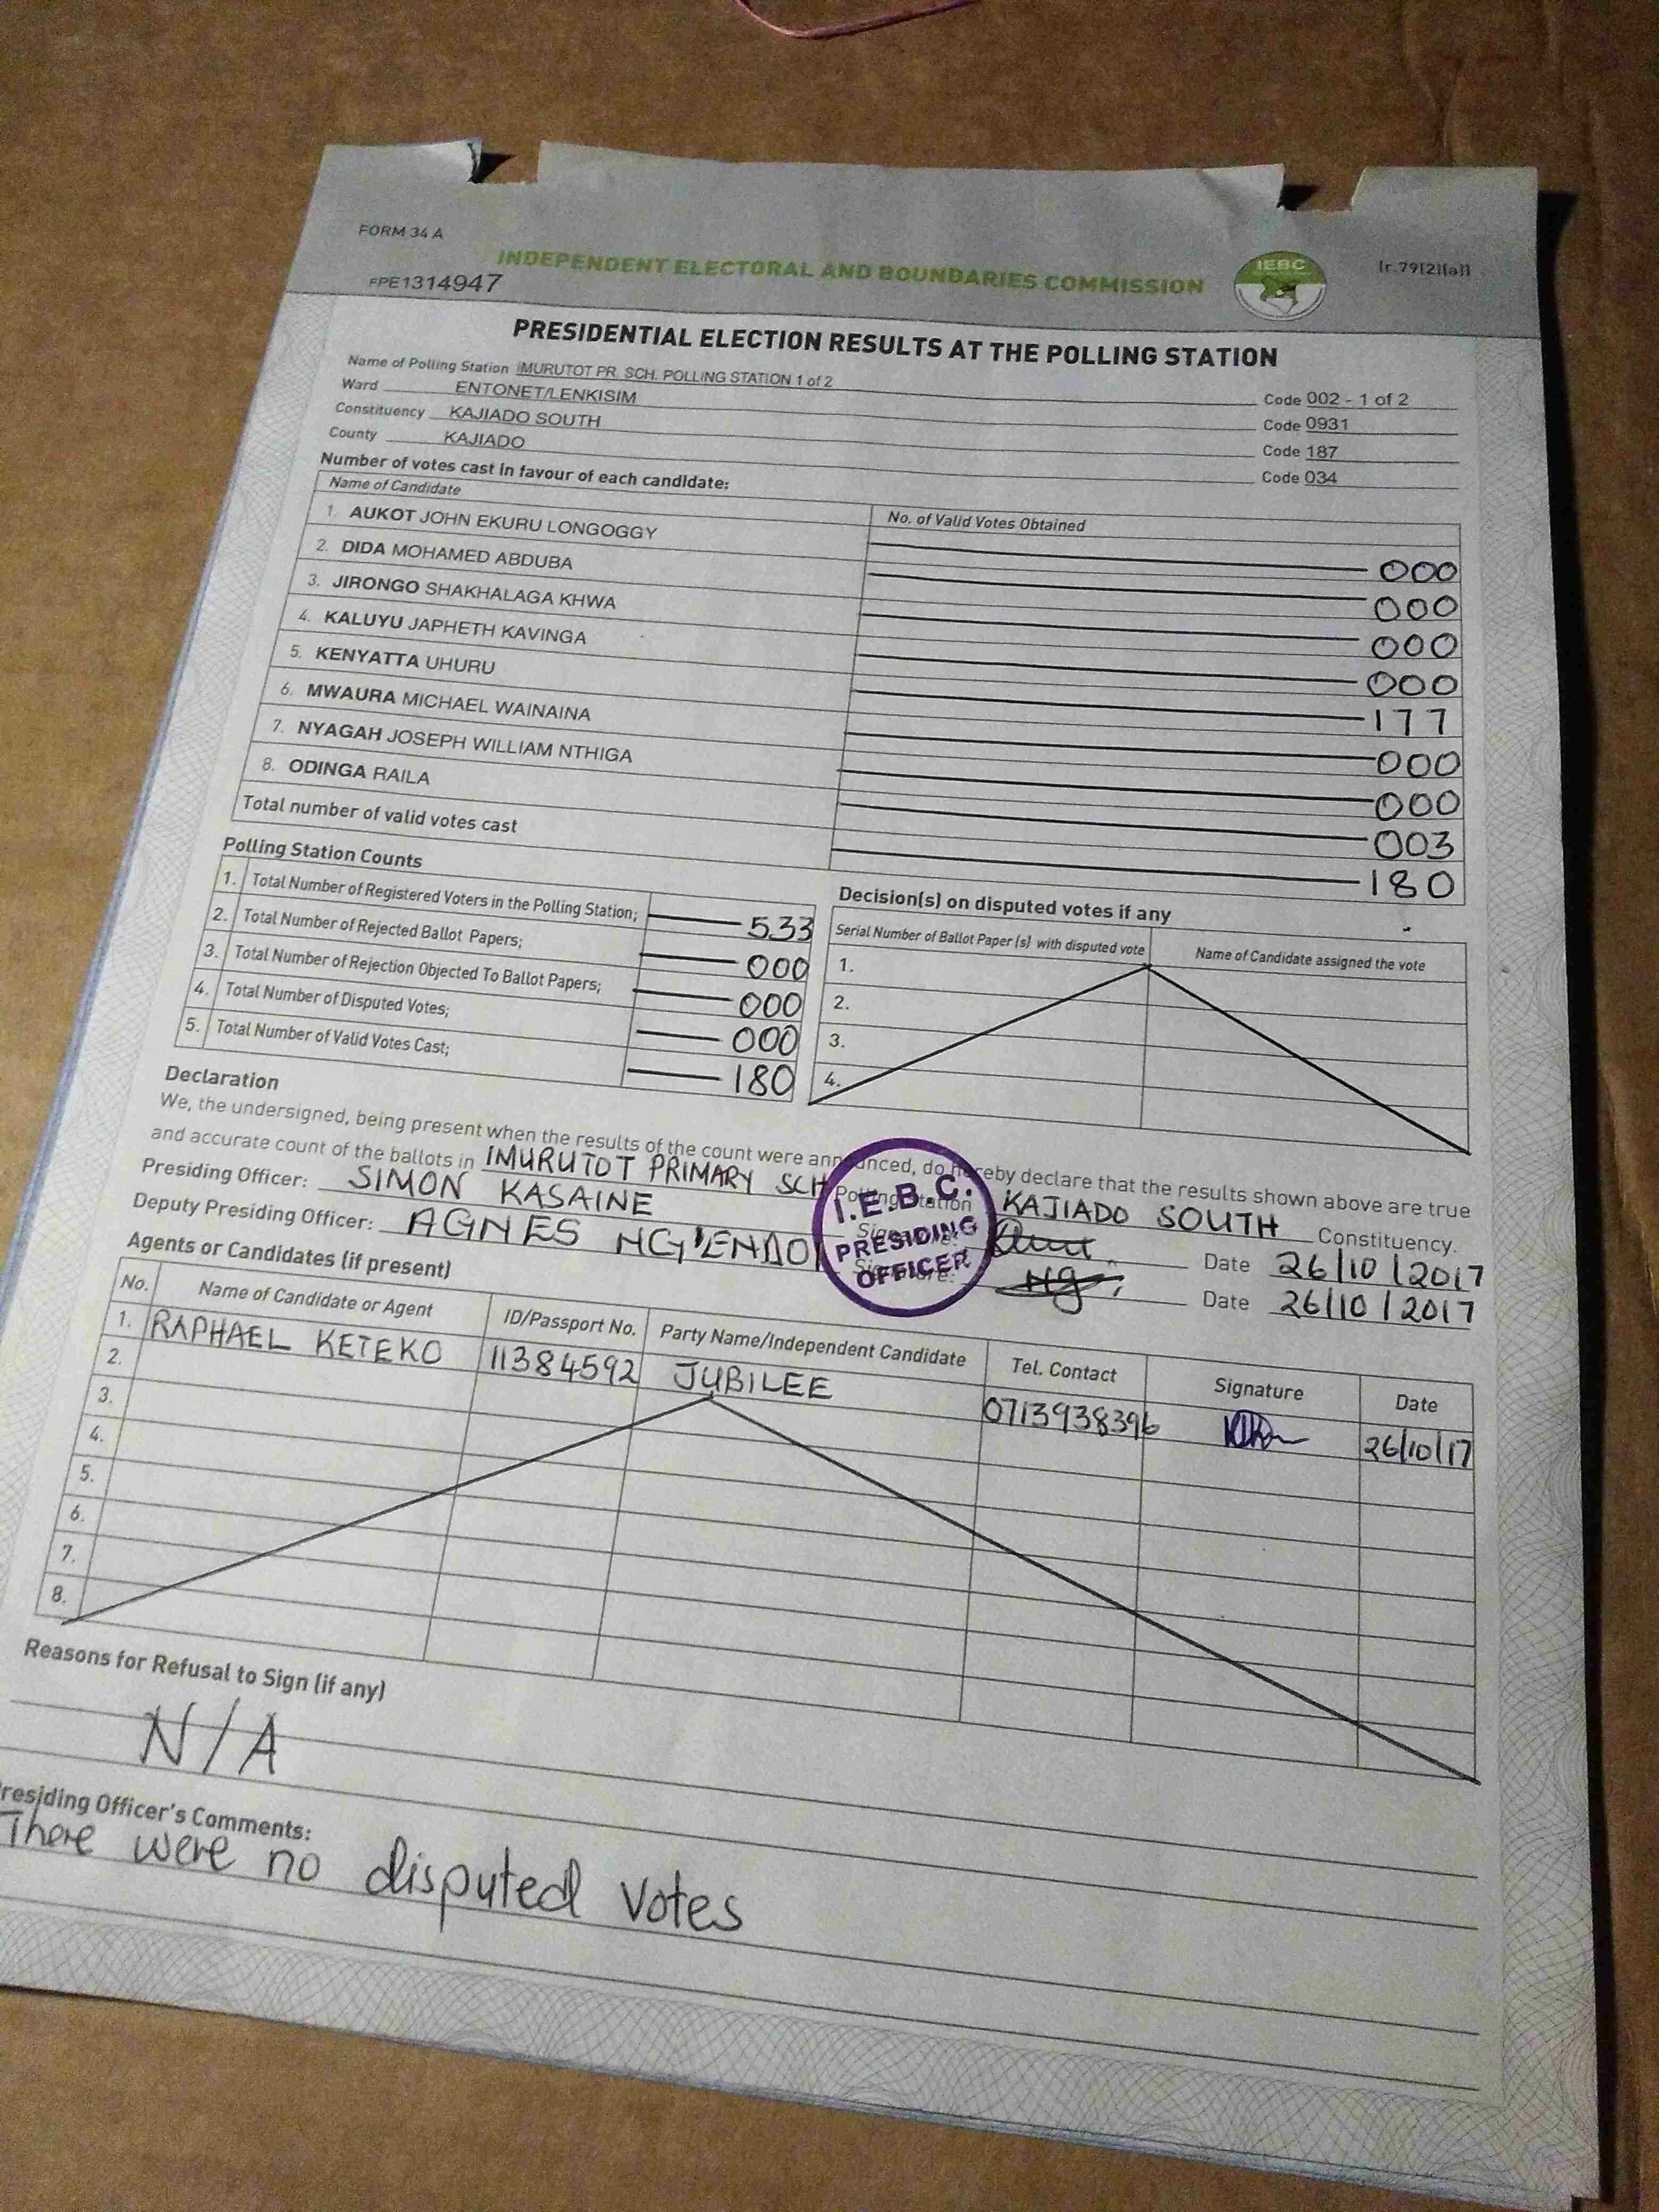 FORM 34 A
INDEPENDENT ELECTORAL AND BOUNDARIES COMMISSION
IEBC
(r.79(2)(a))
FPE1314947
PRESIDENTIAL ELECTION RESULTS AT THE POLLING STATION
Name of Polling Station IMURUTOT PR. SCH. POLLING STATION 1 of 2 Code 002 - 1 of 2
Ward ENTONET/LENKISIM Code 0931
Constituency KAJIADO SOUTH Code 187
County KAJIADO Code 034
Number of votes cast in favour of each candidate:
Name of Candidate No. of Valid Votes Obtained
1. AUKOT JOHN EKURU LONGOGGY 000
2. DIDA MOHAMED ABDUBA 000
3. JIRONGO SHAKHALAGA KHWA 000
4. KALUYU JAPHETH KAVINGA 000
5. KENYATTA UHURU 177
6. MWAURA MICHAEL WAINAINA 000
7. NYAGAH JOSEPH WILLIAM NTHIGA 000
8. ODINGA RAILA 003
Total number of valid votes cast 180
Polling Station Counts
1. Total Number of Registered Voters in the Polling Station; 533
2. Total Number of Rejected Ballot Papers; 000
3. Total Number of Rejection Objected To Ballot Papers; 000
4. Total Number of Disputed Votes; 000
5. Total Number of Valid Votes Cast; 180
Decision(s) on disputed votes if any
Serial Number of Ballot Paper (s) with disputed vote Name of Candidate assigned the vote
1.
2.
3.
4.
Declaration
We, the undersigned, being present when the results of the count were announced, do hereby declare that the results shown above are true
and accurate count of the ballots in IMURUTOT PRIMARY SCH Polling Station KAJIADO SOUTH Constituency.
Presiding Officer: SIMON KASAINE Signature: Date 26/10/2017
Deputy Presiding Officer: AGNES NG'ENDO Signature: Ng Date 26/10/2017
I.E.B.C.
PRESIDING
OFFICER
Agents or Candidates (if present)
No. Name of Candidate or Agent ID/Passport No. Party Name/Independent Candidate Tel. Contact Signature Date
1. RAPHAEL KETEKO 11384592 JUBILEE 0713938396 26/10/17
2.
3.
4.
5.
6.
7.
8.
Reasons for Refusal to Sign (if any)
N/A
Presiding Officer's Comments:
There were no disputed votes